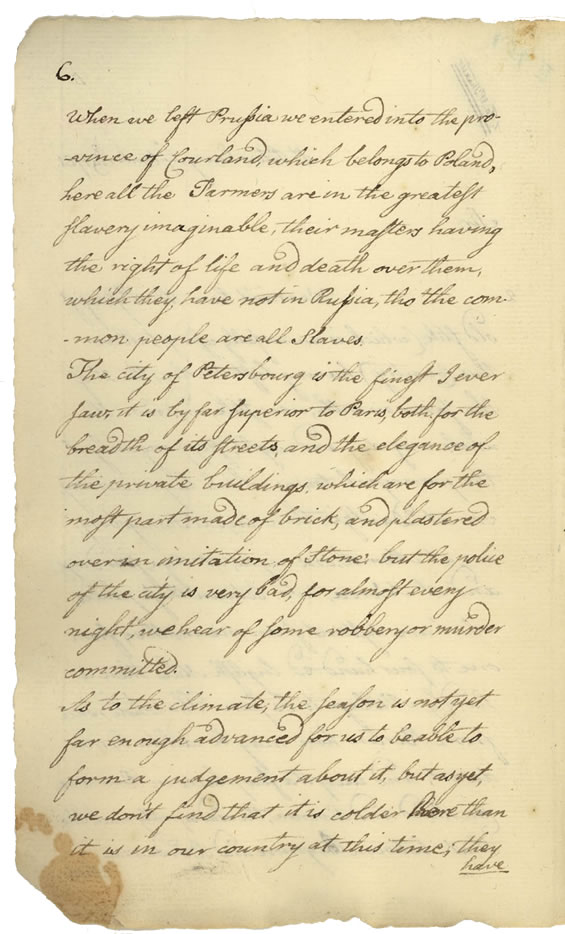 6.
When we left Prussia we entered into the pro-
-vince of Courland, which belongs to Poland,
here all the Farmers are in the greatest
slavery imaginable, their masters having
the right of life and death over them,
which they, have not in Russia, tho' the com-
-mon people are all Slaves.
The city of Petersbourg is the finest I ever
saw; it is by far superior to Paris, both for the
breadth of its streets, and the elegance of
the private buildings, which are for the
most part made of brick, and plastered
over in imitation of Stone: but the police
of the city is very bad, for almost every
night, we hear of some robbery or murder
committed.
As to the climate, the season is not yet
far enough advanced for us to be able to
form a judgement about it, but as yet,
we don't find that it is colder here than
it is in our country at this time; they
have